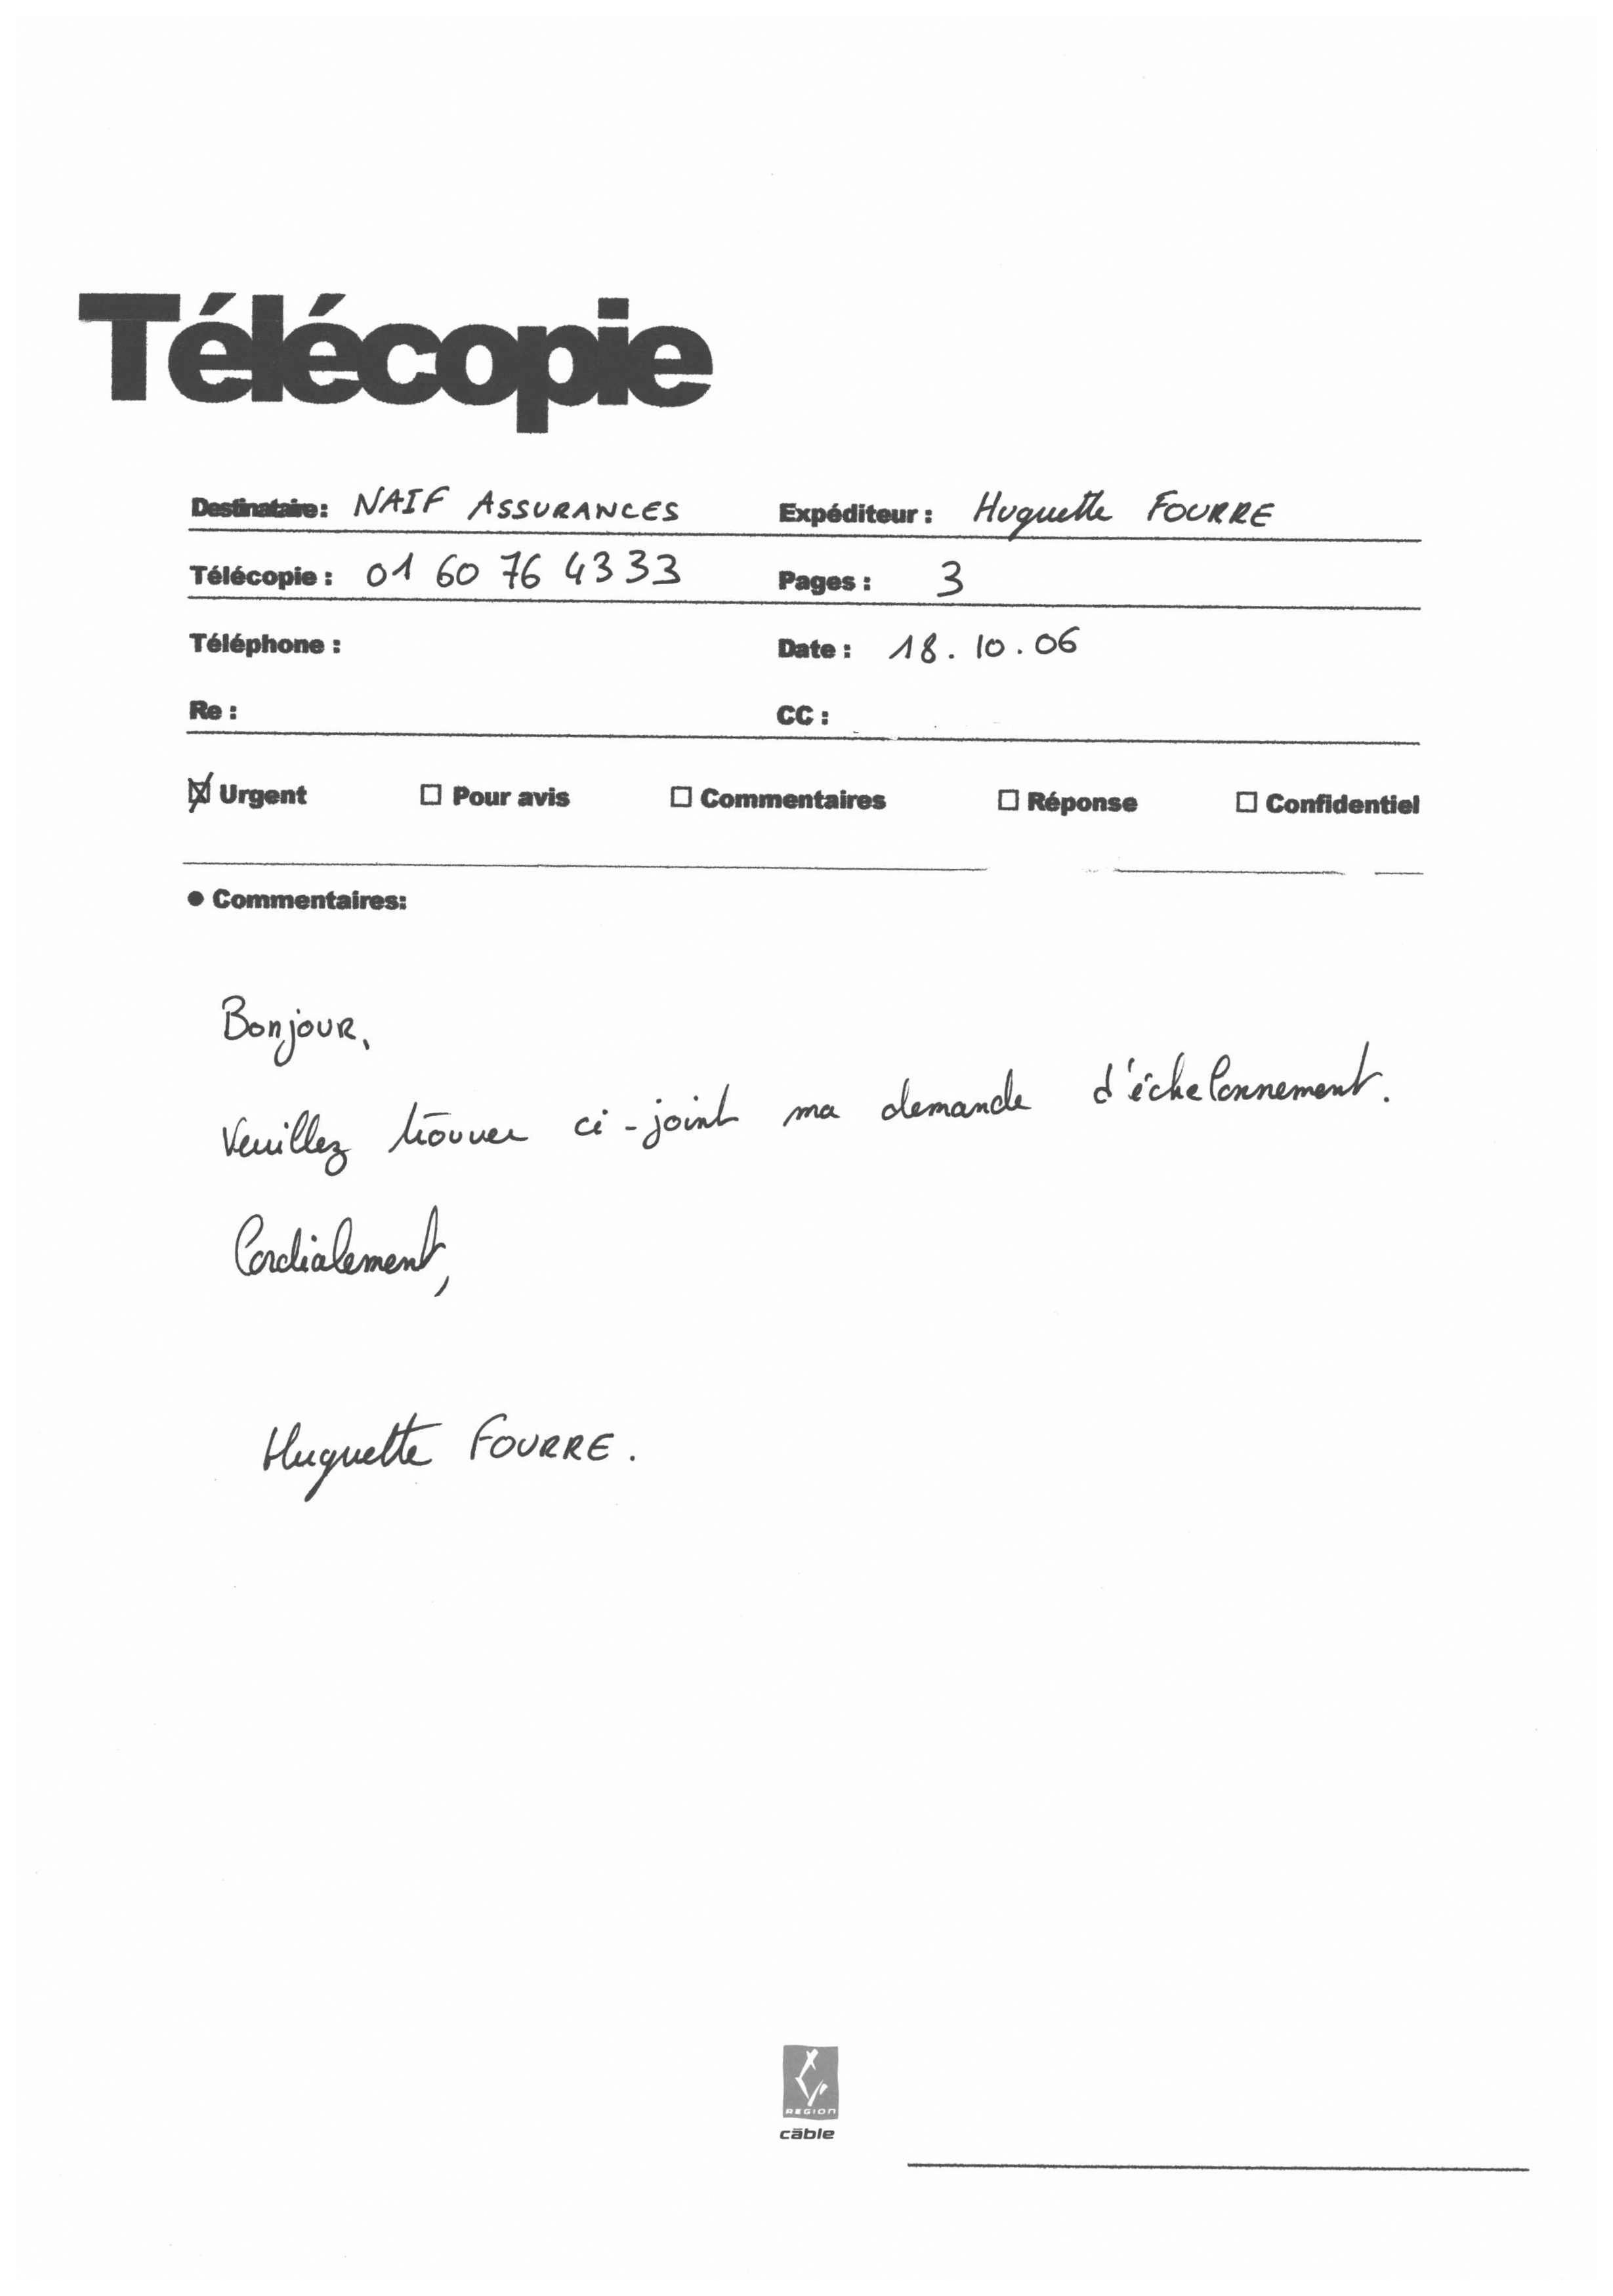 Télécopie
Destinataire: NAIF ASSURANCES Expéditeur : Huguette FOURRE
Télécopie : 01 60 76 43 33 Pages : 3
Téléphone : Date : 18. 10. 06
Re : CC :
Urgent Pour avis Commentaires Réponse Confidentiel
• Commentaires:
Bonjour,
Veuillez trouver ci-joint ma demande d'échelonnement.
Cordialement,
Huguette FOURRE.
REGION
câble